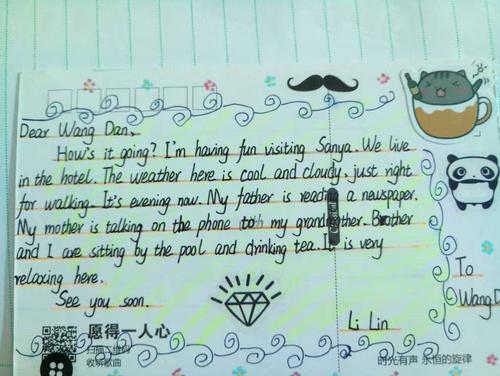 Dear Wang Dan,
How's it going? I'm having fun visiting Sanya. We live
in the hotel. The weather here is cool and cloudy, just right
for walking. It's evening now. My father is readin a newspaper.
My mother is talking on the phone to my grandmother. Brother
and I are sitting by the pool and drinking tea. It is very
relaxing here.
See you soon.
To
Wang D
Li Lin
愿得一人心
扫描二维码
收听歌曲
时光有声 永恒的旋律